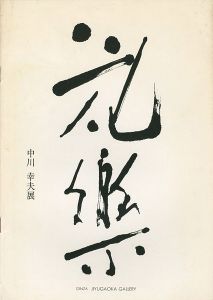 花樂
中川幸夫展
GINZA JIYUGAOKA GALLERY